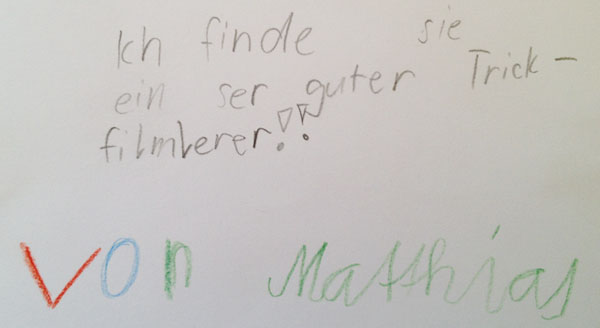 Ich finde sie
ein ser guter Trick-
filmlerer!!
Von Matthias